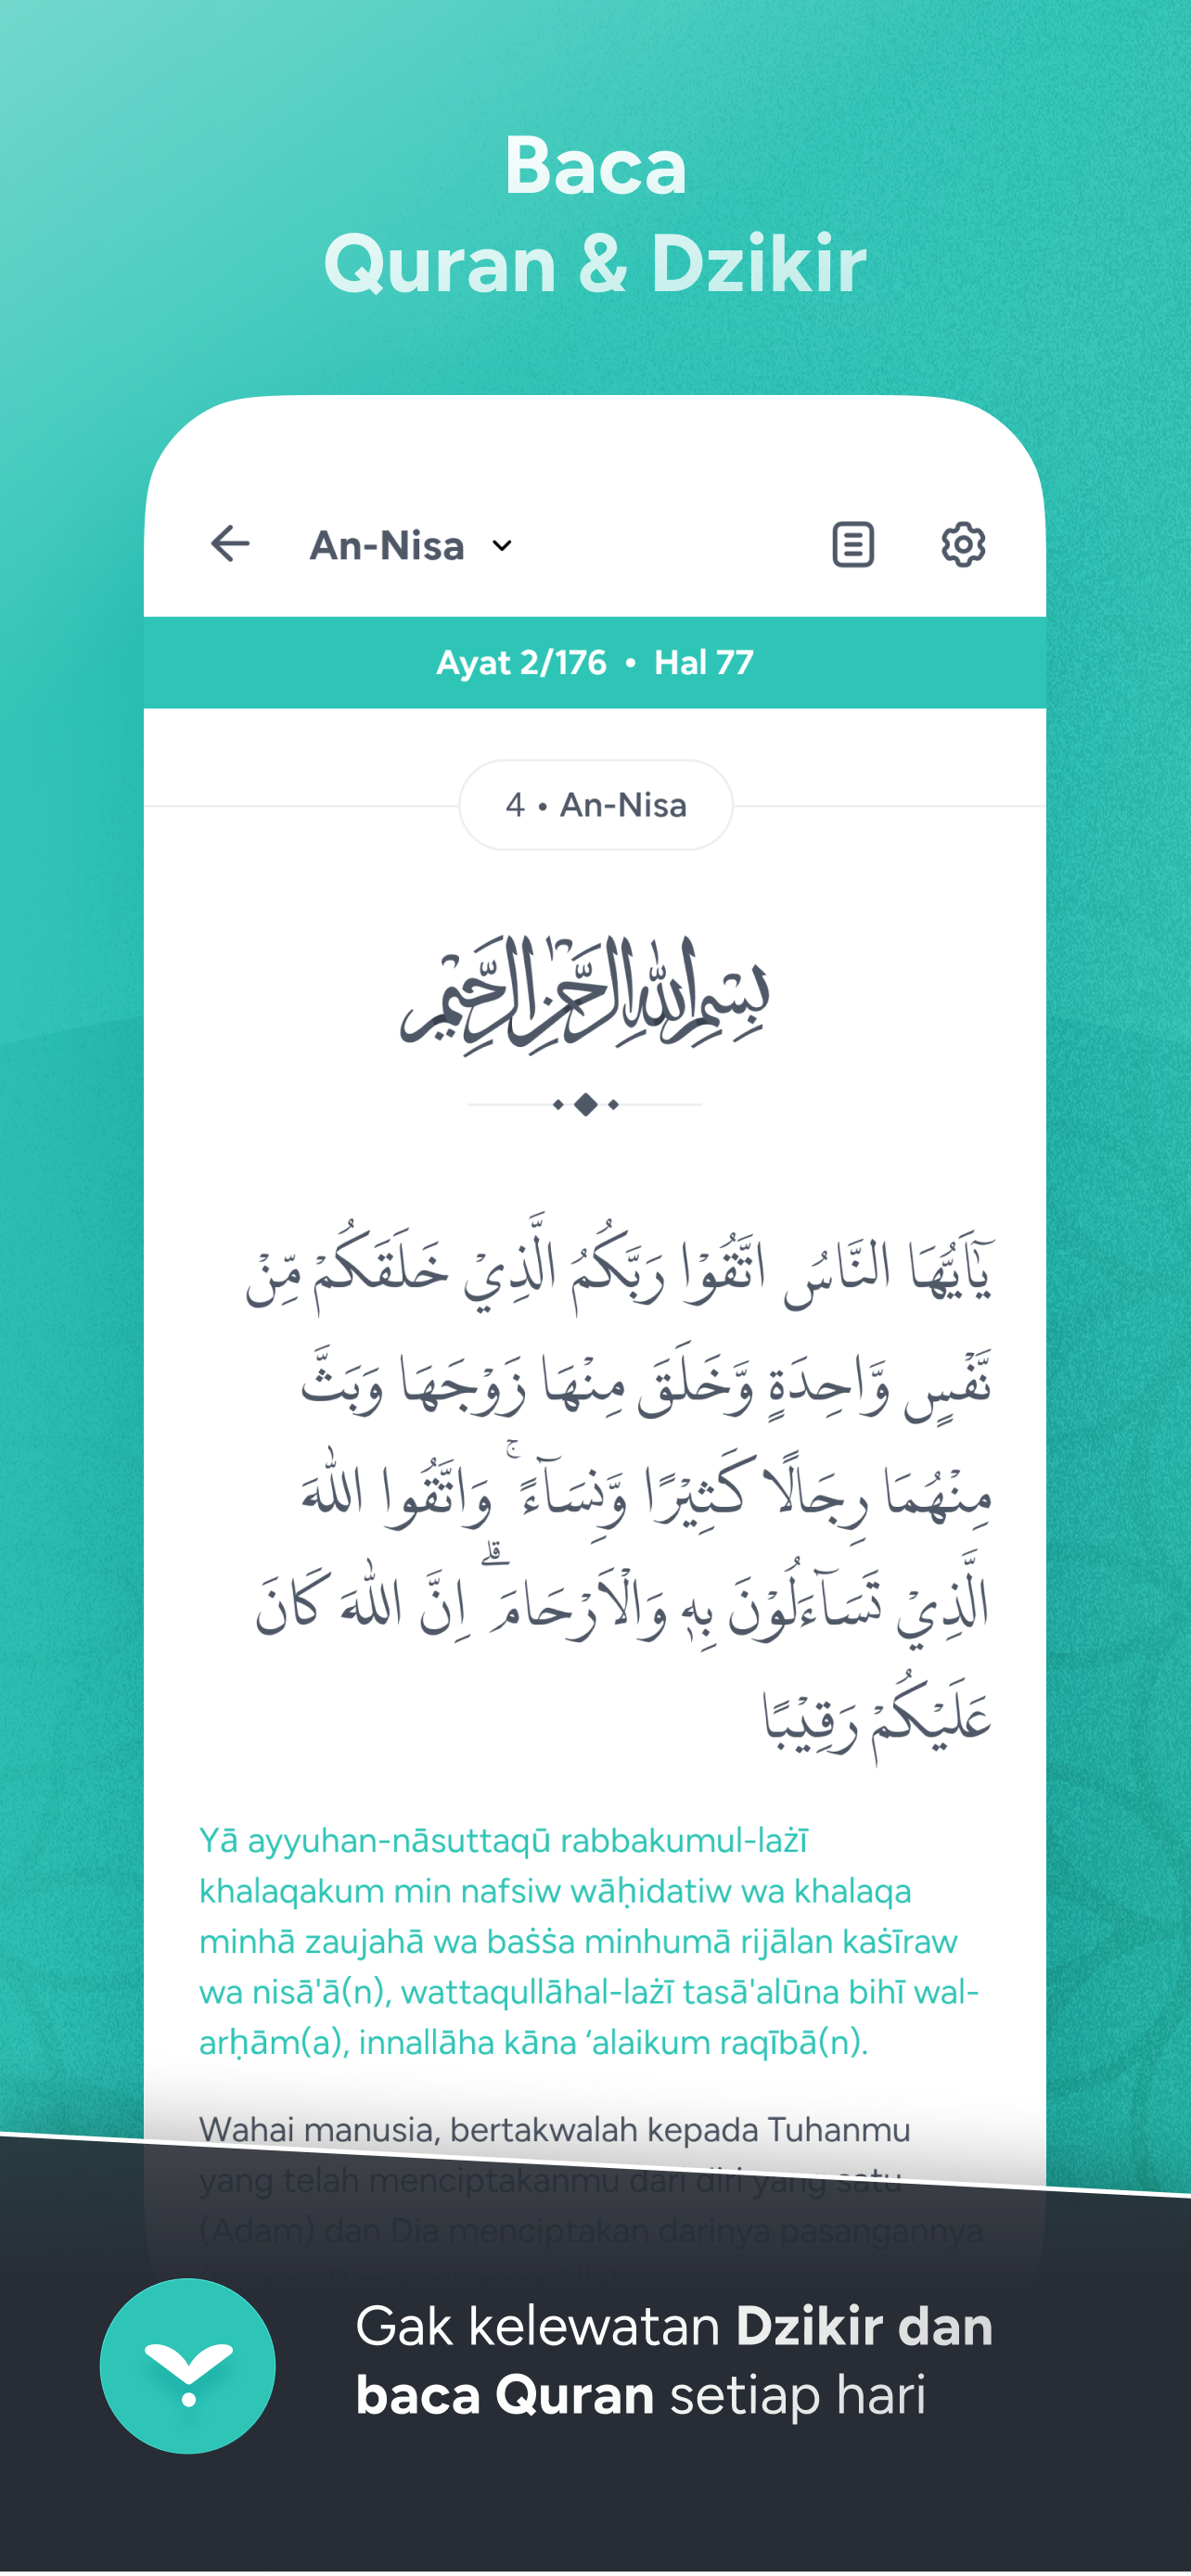 Baca
Quran & Dzikir
An-Nisa
Ayat 2/176 • Hal 77
4 • An-Nisa
بِسْمِ اللهِ الرَّحْمٰنِ الرَّحِيْمِ
يٰٓاَيُّهَا النَّاسُ اتَّقُوْا رَبَّكُمُ الَّذِيْ خَلَقَكُمْ مِّنْ
نَّفْسٍ وَّاحِدَةٍ وَّخَلَقَ مِنْهَا زَوْجَهَا وَبَثَّ
مِنْهُمَا رِجَالًا كَثِيْرًا وَّنِسَاۤءًۚ وَاتَّقُوا اللّٰهَ
الَّذِيْ تَسَاۤءَلُوْنَ بِهٖ وَالْاَرْحَامَۗ اِنَّ اللّٰهَ كَانَ
عَلَيْكُمْ رَقِيْبًا
Yā ayyuhan-nāsuttaqū rabbakumul-lażī
khalaqakum min nafsiw wāḥidatiw wa khalaqa
minhā zaujahā wa baṡṡa minhumā rijālan kaṡīraw
wa nisā'ā(n), wattaqullāhal-lażī tasā'alūna bihī wal-
arḥām(a), innallāha kāna ‘alaikum raqībā(n).
Wahai manusia, bertakwalah kepada Tuhanmu
yang telah menciptakanmu dari diri yang satu
(Adam) dan Dia menciptakan darinya pasangannya
Gak kelewatan Dzikir dan
baca Quran setiap hari